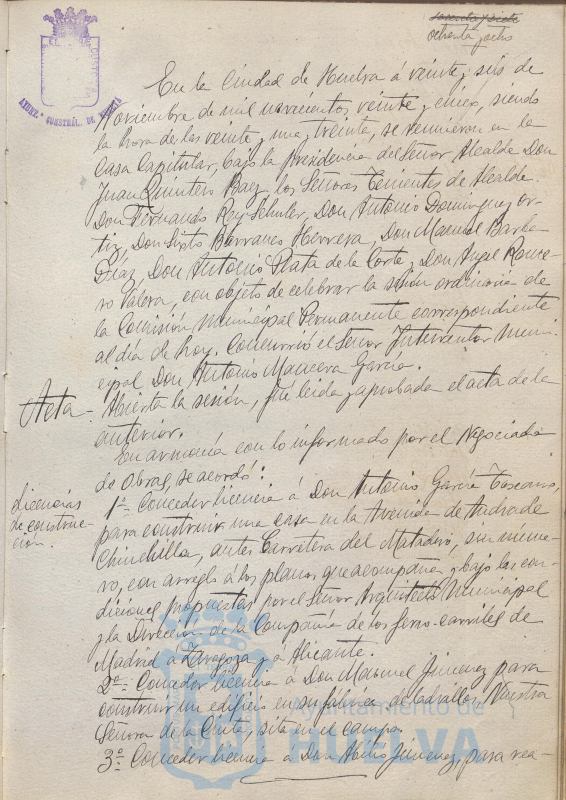 sesenta y siete
ochenta y ocho
AYUNT. CONSTITUL. DE HUELVA
En la Ciudad de Huelva á veinte y seis de
Noviembre de mil novecientos veinte y cinco, siendo
la hora de las veinte y una y treinta, se reunieron en la
Casa Capitular, bajo la Presidencia del Señor Alcalde Don
Juan Quintero Baez los Señores Tenientes de Alcalde
Don Fernando Rey Schuler, Don Antonio Dominguez Or-
tiz, Don Sixto Barranco Herrera, Don Manuel Barba
Díaz, Don Antonio Plata de la Corte y Don Angel Rome-
ro Valera, con objeto de celebrar la sesión ordinaria de
la Comisión Municipal Permanente correspondiente
al día de hoy. Concurrió el Señor Interventor Muni-
cipal Don Antonio García.
Acta - Abierta la sesión, fué leida y aprobada el acta de la
anterior.
En armonía con lo informado por el Negociado
de Obras, se acordó:
Licencias
de construc-
ción.
1º- Conceder licencia á Don Antonio García Toscano,
para construir una casa en la Avenida de Andrade
Chinchilla, antes Carretera del Matadero, sin núme-
ro, con arreglo á los planos que acompaña y bajo las con-
diciones propuestas por el Señor Arquitecto Municipal
y la Dirección de la Compañía de los ferro-carriles de
Madrid á Zaragoza y á Alicante.
2º- Conceder licencia á Don Manuel Jimenez para
construir un edificio en su fábrica de ladrillos Nuestra
Señora de la Cinta, sita en el campo.
3º- Conceder licencia á Don Jimenez, para rea-
Ayuntamiento de
HUELVA